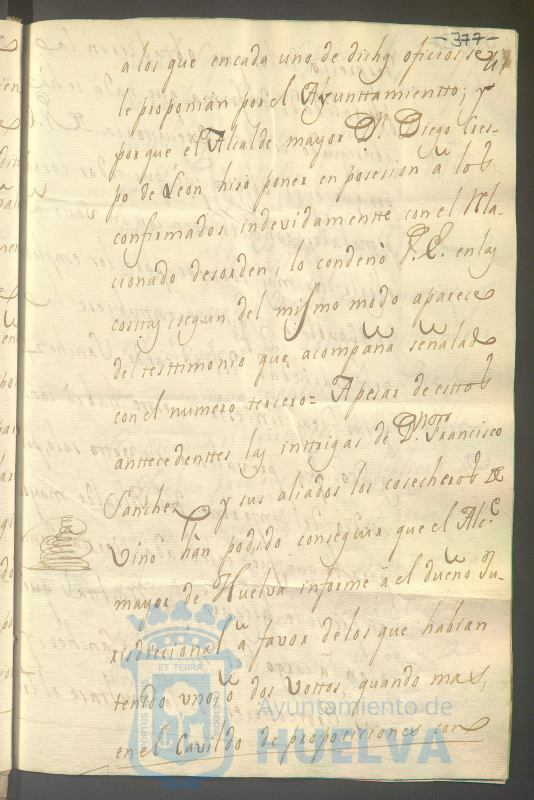 -377-
a los que en cada uno de dichos oficios se
le proponian por el Ayunttamientto; y
porque el Alcalde mayor Dn. Diego Cres-
po de Leon hiso poner en posesion a los
confirmados indevidamentte con el rela-
cionado desorden, lo condenò V.E. en las
costas, segun del mismo modo aparece
del testtimonio que acompaña señalado
con el numero tercero= Apesar de esttos
anttecedenttes las inttrigas de Dn. Francisco
Sanchez y sus aliados los cosecheros de
Vino hàn podido conseguir que el Alc.e
mayor de Huelva informe à el dueño Ju-
risdiccional à favor de los que habian
tenido uno, ò dos vottos, quando mas,
en el Cavildo de proposiciones con
PORTUS MARIS
ET TERRÆ
CUSTODIA
Ayuntamiento de
HUELVA